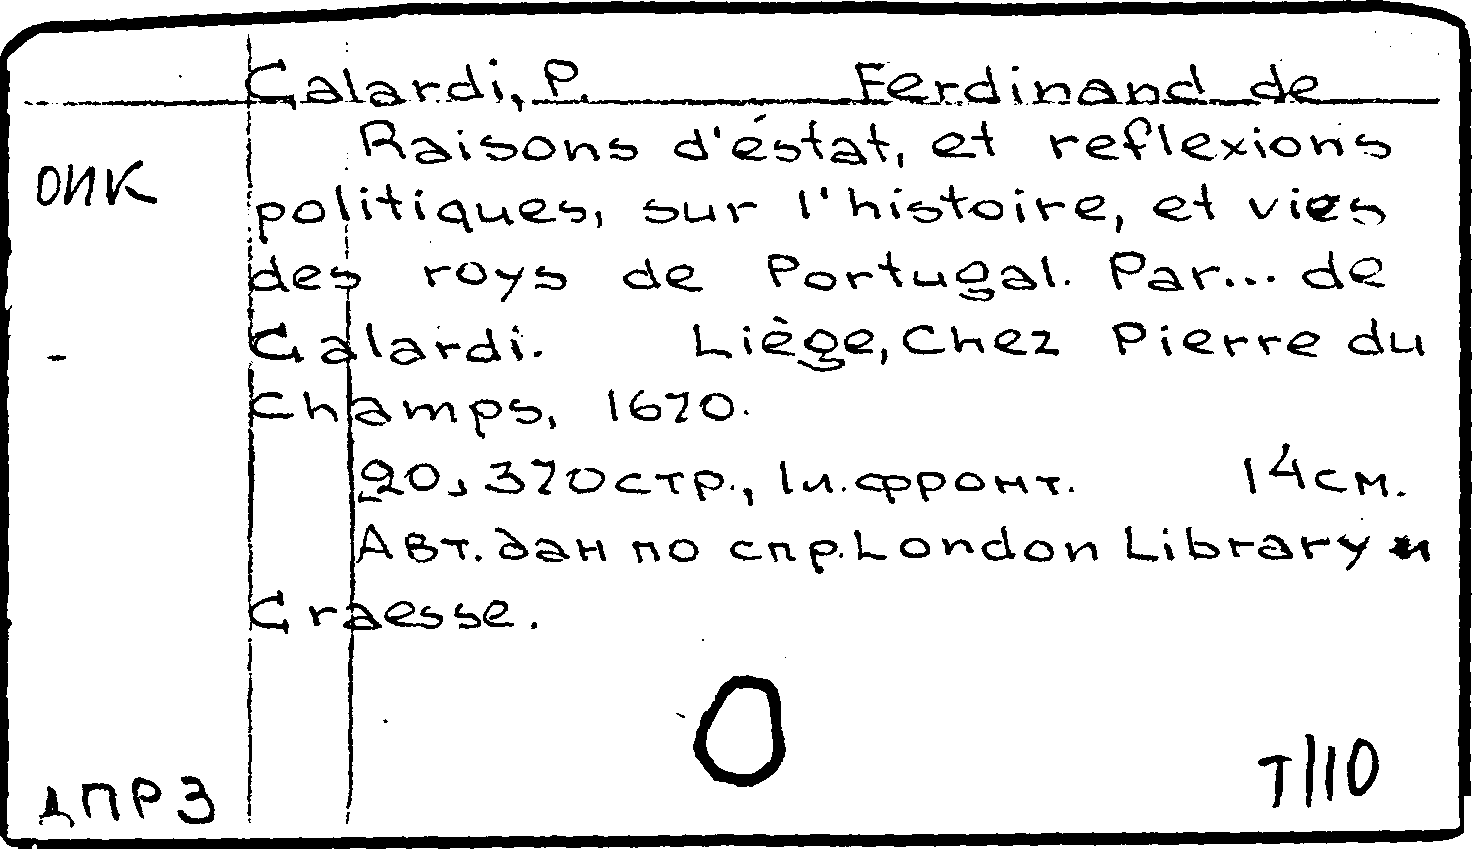 Galardi, P. Ferdinand de
Raisons d'éstat, et reflexions
ОИК
politiques, sur l'histoire, et vies
des roys de Portugal. Par... de
- Galardi. Liège, Chez Pierre du
Champs, 1670.
20, 370 стр., 1 и. фронт. 14 см.
Авт. дан по спр. London Library и
Graesse.
ДПРЗ
T/110